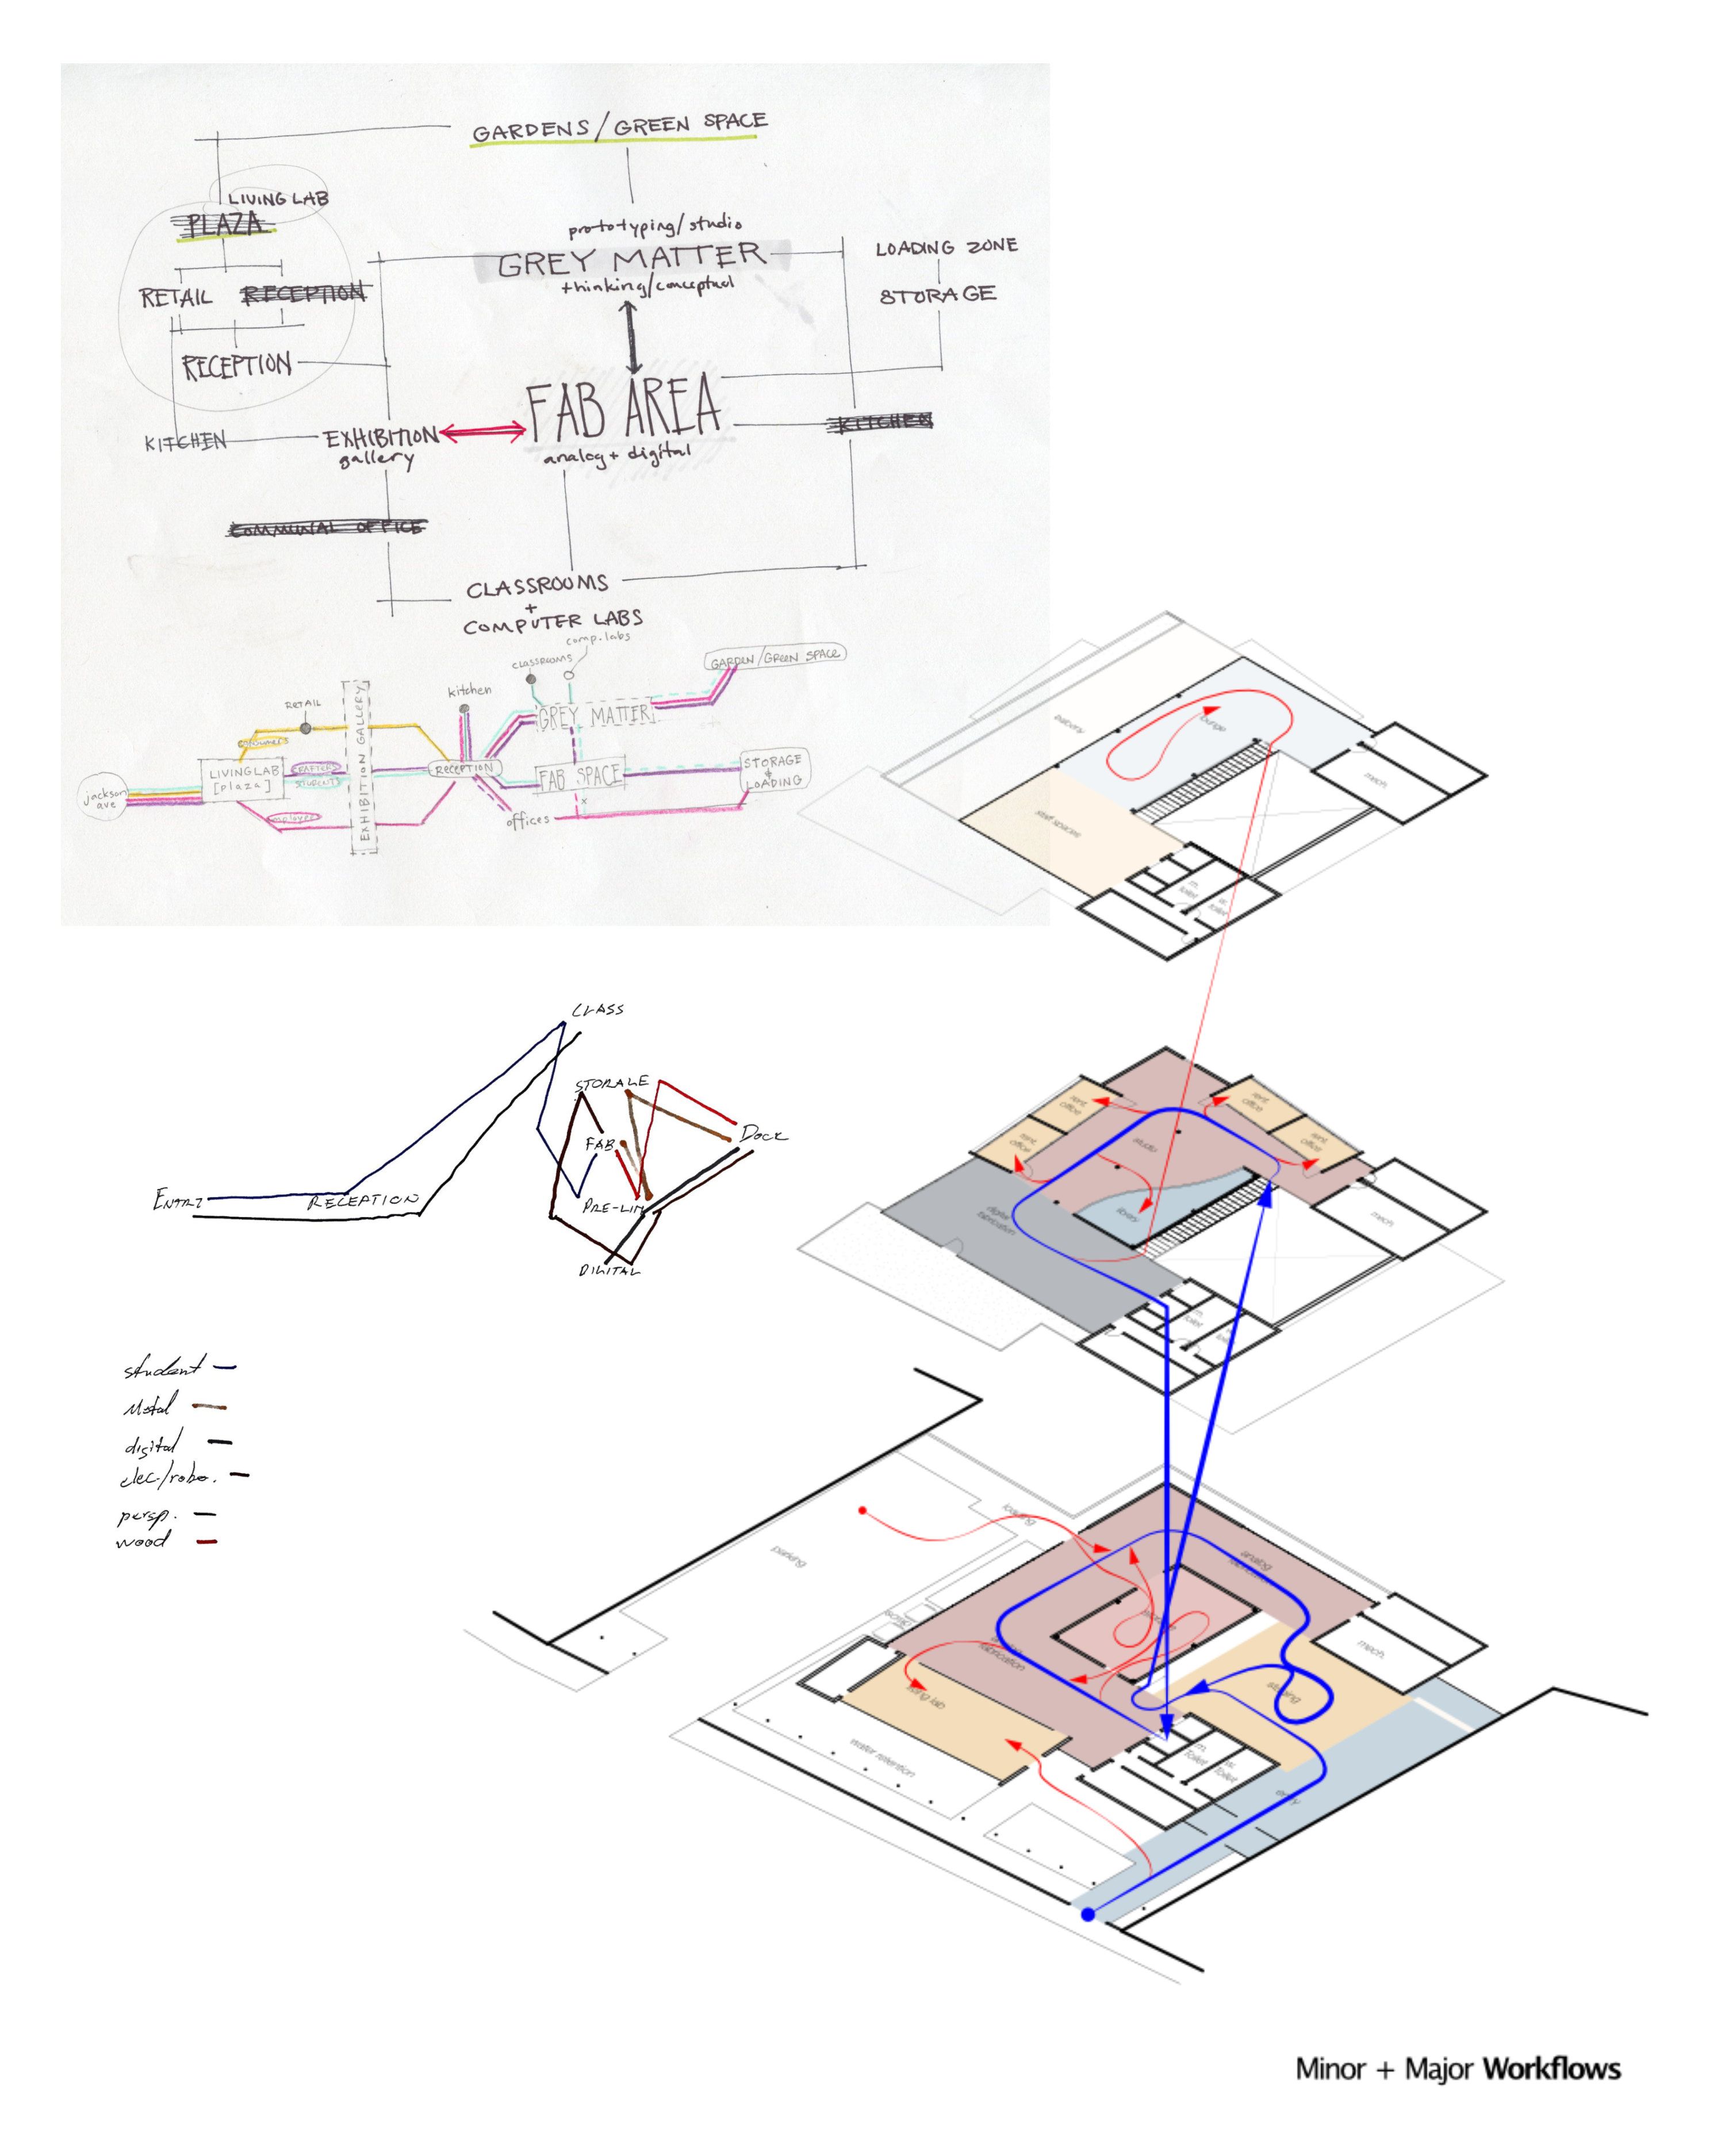 GARDENS/GREEN SPACE
LIVING LAB
PLAZA
prototyping/studio
GREY MATTER
thinking/conceptual
LOADING ZONE
STORAGE
RETAIL RECEPTION
RECEPTION
FAB AREA
analog + digital
KITCHEN
KITCHEN
EXHIBITION
gallery
COMMUNAL OFFICE
CLASSROOMS
+
COMPUTER LABS
comp. labs
classrooms
GARDEN/GREEN SPACE
kitchen
RETAIL
GREY MATTER
EXHIBITION GALLERY
RECEPTION
LIVINGLAB
[plaza]
CRAFTERS
STUDENTS
FAB SPACE
STORAGE
&
LOADING
jackson
ave
employees
offices
x
CLASS
STORAGE
FAB
DOCK
ENTRY
RECEPTION
PRE-LIM
DIGITAL
student
Metal
digital
elec./robo.
persp.
wood
balcony
lounge
mech.
staff spaces
m.
toilet
w.
toilet
rent.
office
rent.
office
rent.
office
rent.
office
studio
library
digital
fabrication
mech.
m.
toilet
w.
toilet
loading
parking
analog
fabrication
fabrication
mech.
living lab
water retention
m.
Toilet
w.
Toilet
entry
Minor + Major Workflows